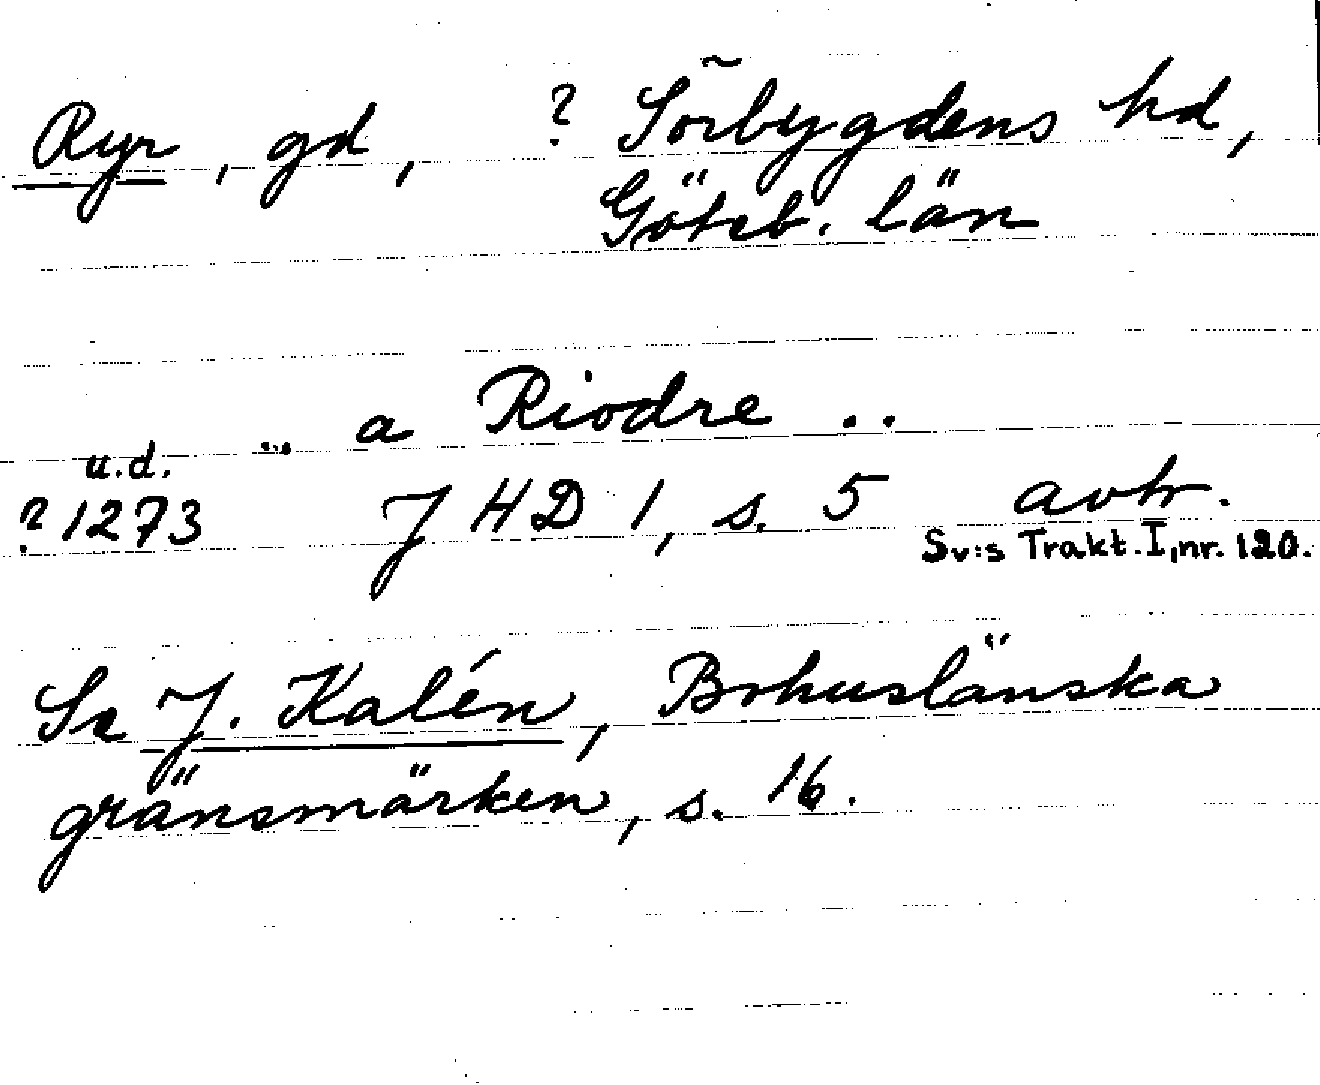 Ryr, gd, ? Sörbygdens hd,
Göteb. län
... a Riodre ..
u.d.
? 1273 J HD 1, s. 5 avtr.
Sv:s Trakt. I, nr. 120.
Se J. Kalén, Bohuslänska
gränsmärken, s. 16.